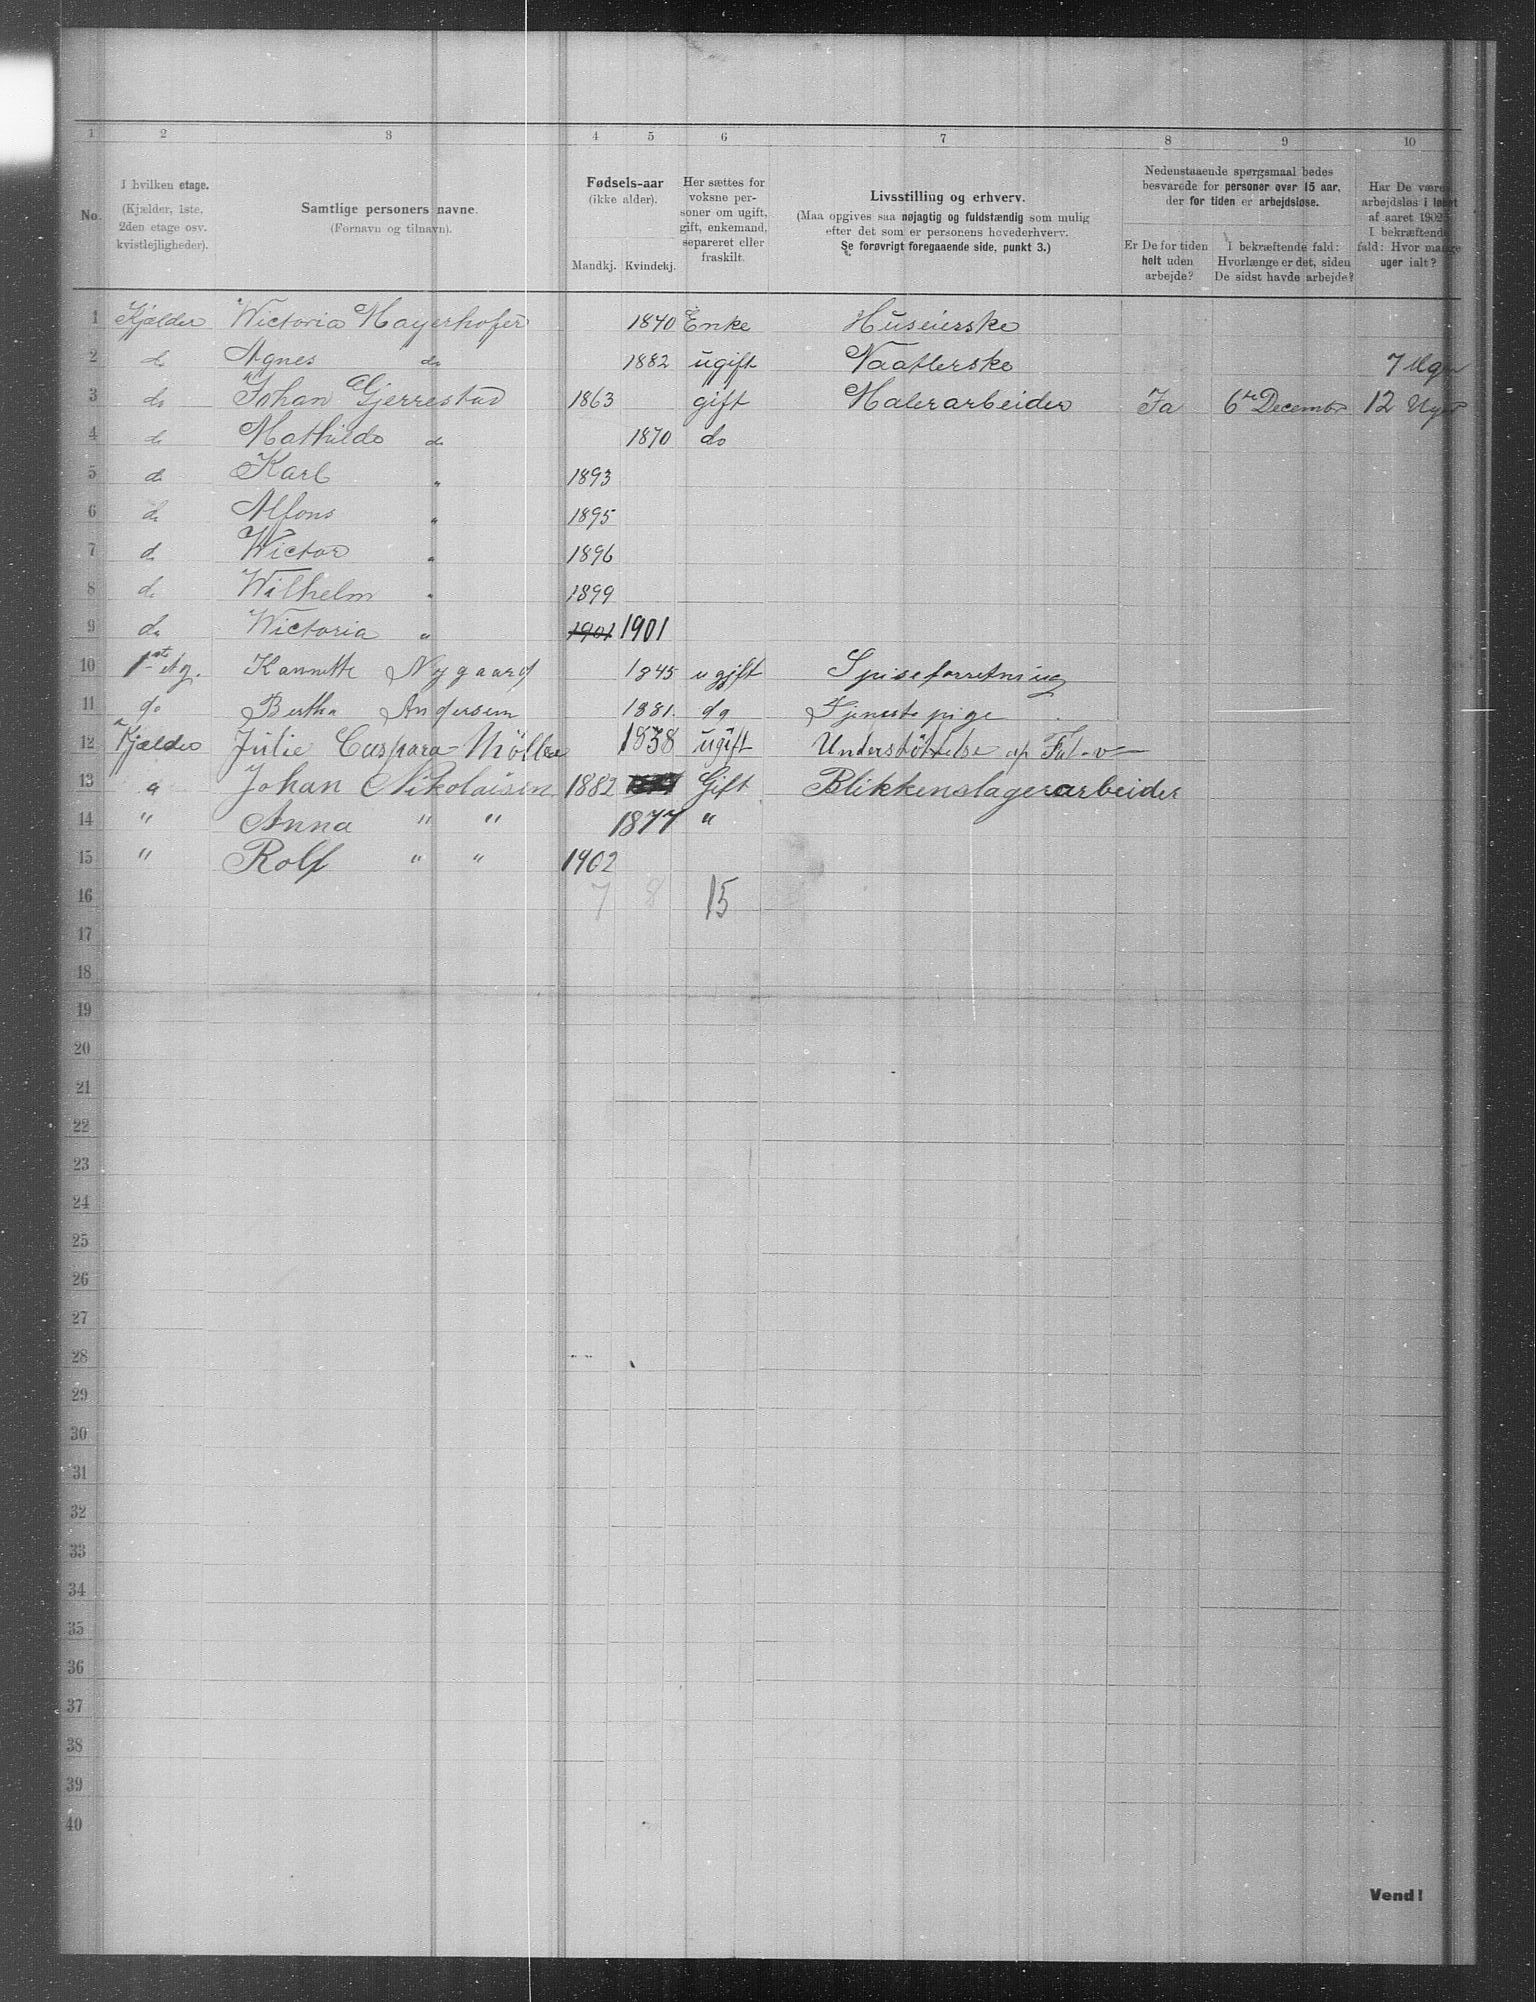 1 2 3 4 5 6 7 8 9 10
No.
I hvilken etage.
(Kjælder, 1ste,
2den etage osv.
kvistlejligheder).
Samtlige personers navne.
(Fornavn og tilnavn).
Fødsels-aar
(ikke alder).
Mandkj. Kvindekj.
Her sættes for
voksne per-
soner om ugift,
gift, enkemand,
separeret eller
fraskilt.
Livsstilling og erhverv.
(Maa opgives saa nøjagtig og fuldstændig som mulig
efter det som er personens hovederhverv.
Se forøvrigt foregaaende side, punkt 3.)
Nedenstaaende spørgsmaal bedes
besvarede for personer over 15 aar,
der for tiden er arbejdsløse.
Er De for tiden
helt uden
arbejde?
I bekræftende fald:
Hvorlænge er det, siden
De sidst havde arbejde?
Har De være
arbejdsløs i løbet
af aaret 1902
I bekræftende
fald: Hvor mange
uger ialt?
1 Kjælder Wictoria Mayerhofer 1840 Enke Huseierske
2 do Agnes do 1882 ugift Vaatterske 7
3 do Johan Gjerrestad 1863 gift Malerarbeider Ja 6te December 12 Uger
4 do Mathilde do 1870 do
5 do Karl " 1893
6 do Alfons " 1895
7 do Wictor " 1896
8 do Wilhelm " 1899
9 do Wictoria " 1901 1901
10 1st Etg. Nygaard 1845 ugift Spiseforretning
11 do Bertha Andersen 1881. do Tjenestepige
12 Kjælder Julie Caspara Möller 1838 ugift Understöttelse af
13 " Johan Nikolaisen 1882 Gift Blikkenslagerarbeider
14 " Anna " " 1877 "
15 " Rolf " " 1902
16 7 8 15
17
18
19
20
21
22
23
24
25
26
27
28
29
30
31
32
33
34
35
36
37
38
39
40
Vend!